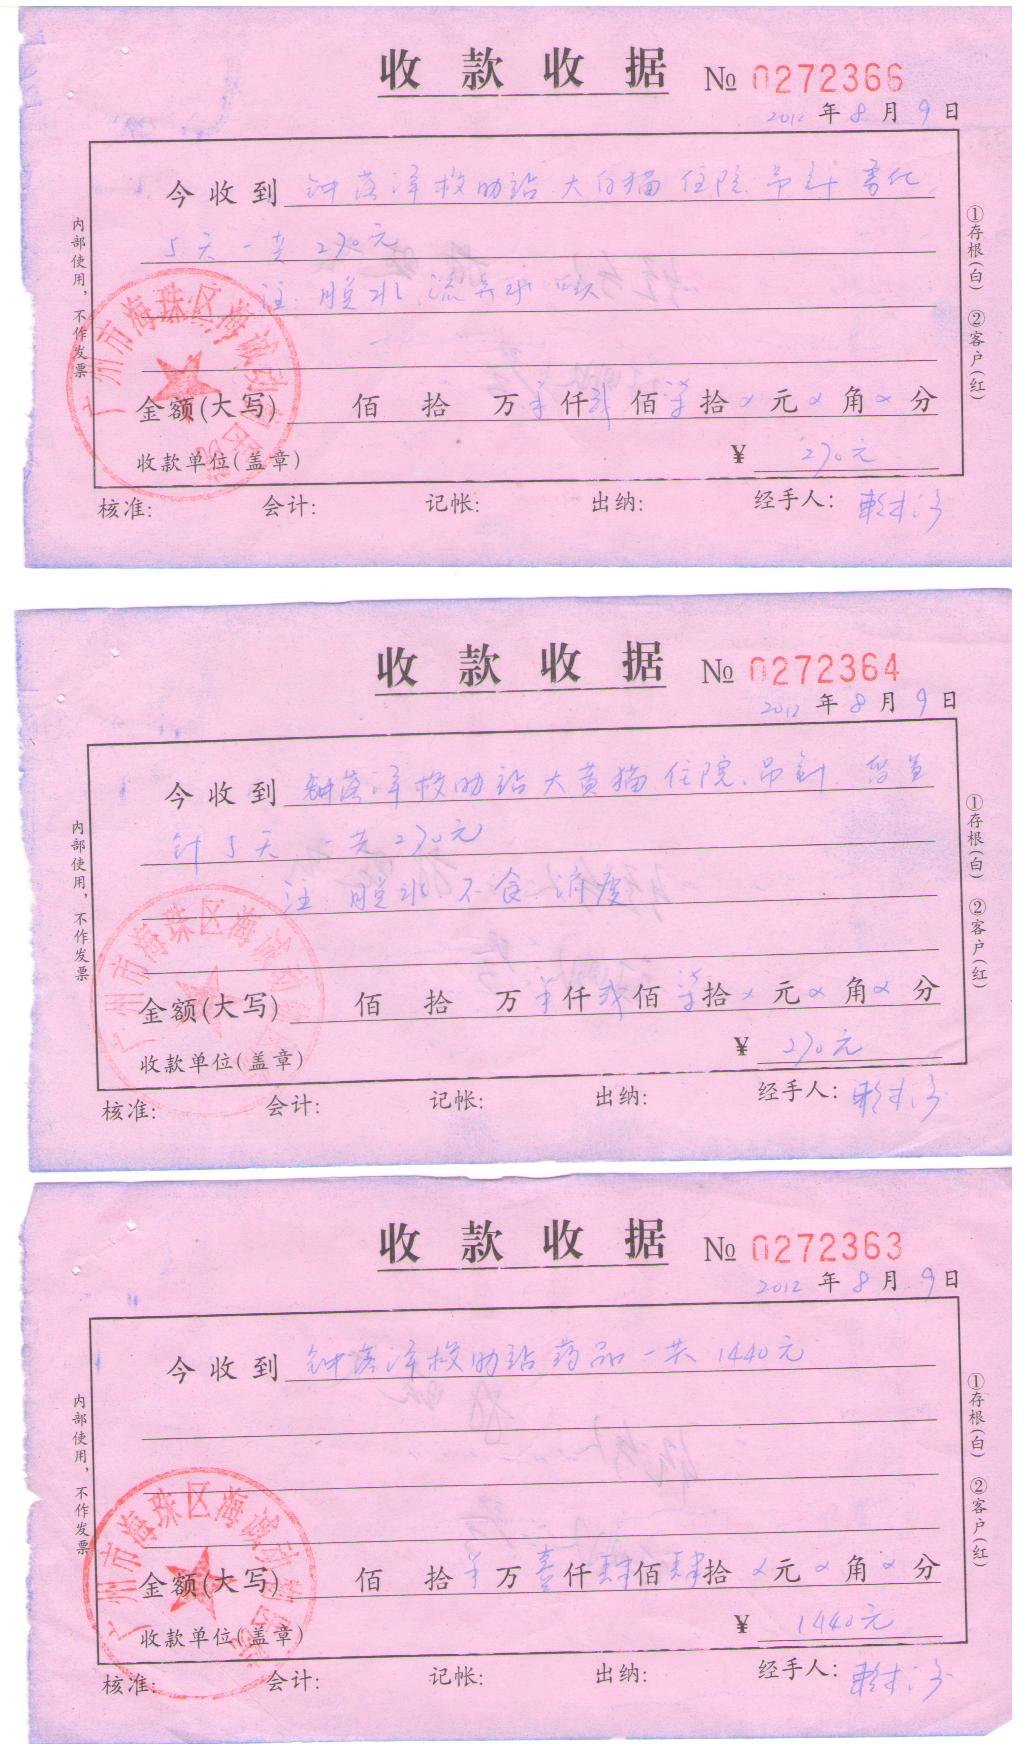 收款收据 № 0272366
2012 年 8 月 9 日
今收到 钟落潭救助站 大白猫 住院、吊针 雾化
5天 一共 270元
注: 脱水 流鼻水 咳
金额(大写) 佰 拾 万 仟 贰 佰 柒 拾 元 角 分
收款单位(盖章) ¥ 270元
核准: 会计: 记帐: 出纳: 经手人:
内部使用,不作发票
①存根(白) ②客户(红)
广州市海珠区海诚动物医院
收款收据 № 0272364
2012 年 8 月 9 日
今收到 钟落潭救助站 大黄猫 住院、吊针 留置
针 5天 一共270元
注: 脱水 不食 消瘦
金额(大写) 佰 拾 万 仟 贰 佰 柒 拾 元 角 分
收款单位(盖章) ¥ 270元
核准: 会计: 记帐: 出纳: 经手人:
内部使用,不作发票
①存根(白) ②客户(红)
广州市海珠区海诚动物医院
收款收据 № 0272363
2012 年 8 月 9 日
今收到 钟落潭救助站 药品 一共 1440元
金额(大写) 佰 拾 万 壹 仟 肆 佰 肆 拾 元 角 分
收款单位(盖章) ¥ 1440元
核准: 会计: 记帐: 出纳: 经手人:
内部使用,不作发票
①存根(白) ②客户(红)
广州市海珠区海诚动物医院